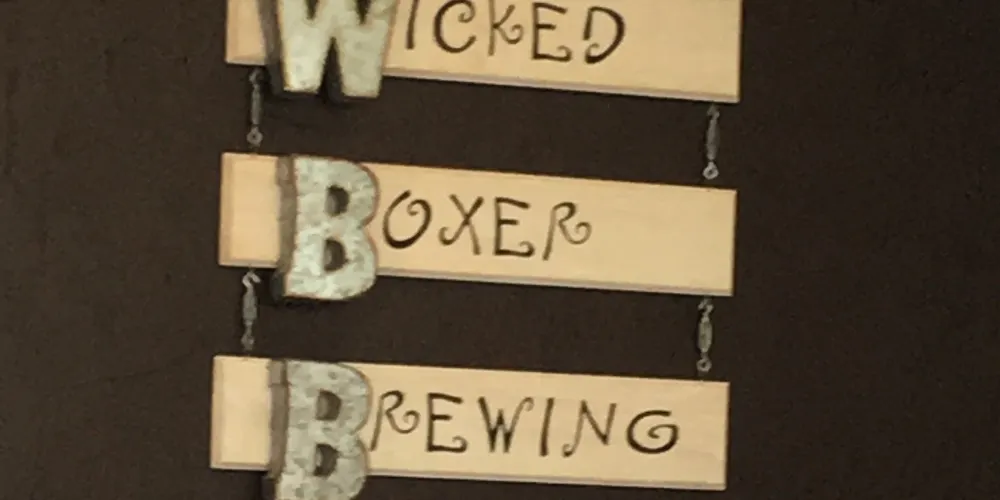 WICKED
BOXER
BREWING